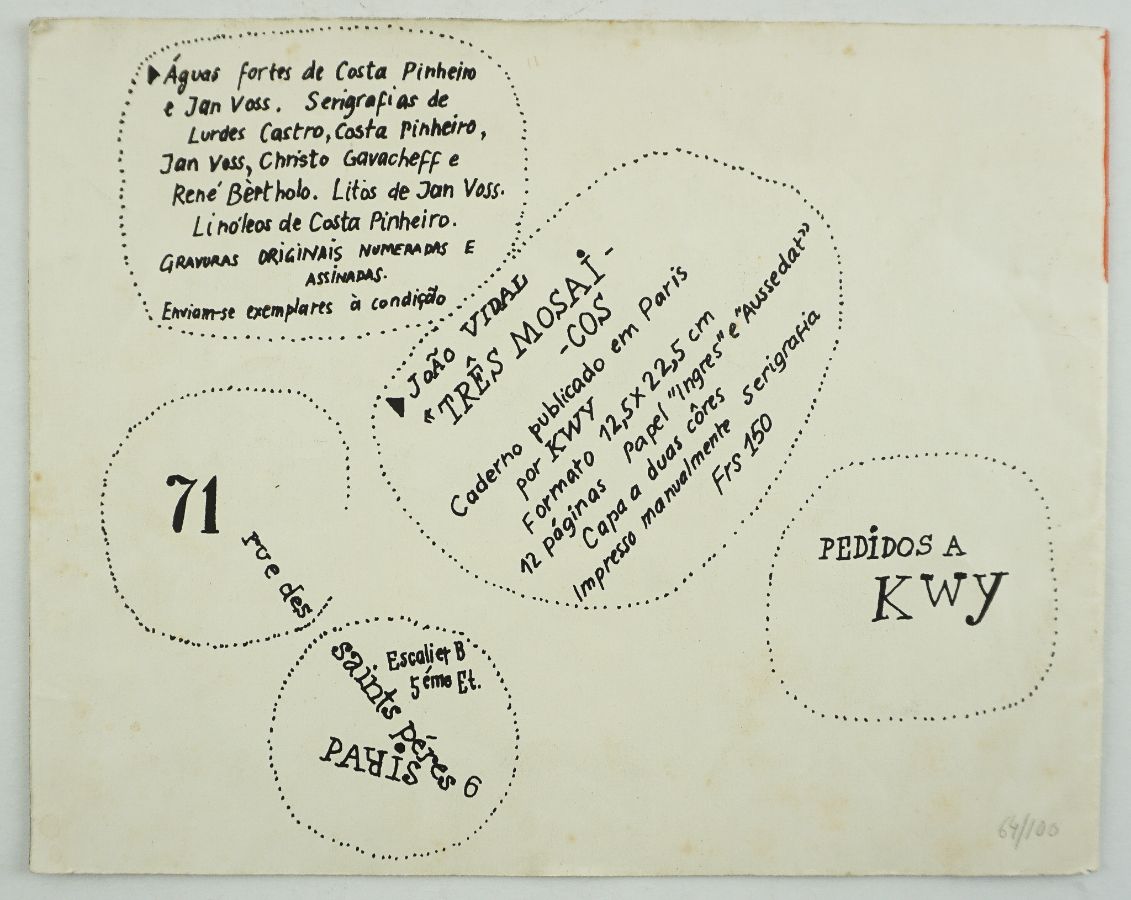 Águas fortes de Costa Pinheiro
e Jan Voss. Serigrafias de
Lurdes Castro, Costa Pinheiro,
Jan Voss, Christo Gavacheff e
René Bèrtholo. Litos de Jan Voss.
Linóleos de Costa Pinheiro.
GRAVURAS ORIGINAIS NUMERADAS E
ASSINADAS.
Enviam-se exemplares à condição
JOÃO VIDAL
"TRÊS MOSAÍ-
-COS
Caderno publicado em Paris
por KWY
Formato 12,5x22,5 cm
12 páginas Papel "Ingres" e "Aussedat"
Capa a duas côres
Impresso manualmente serigrafia
Frs 150
71
rue des
saints péres
Escalier B
5éme Et.
PARIS 6
PEDIDOS A
KWY
64/100